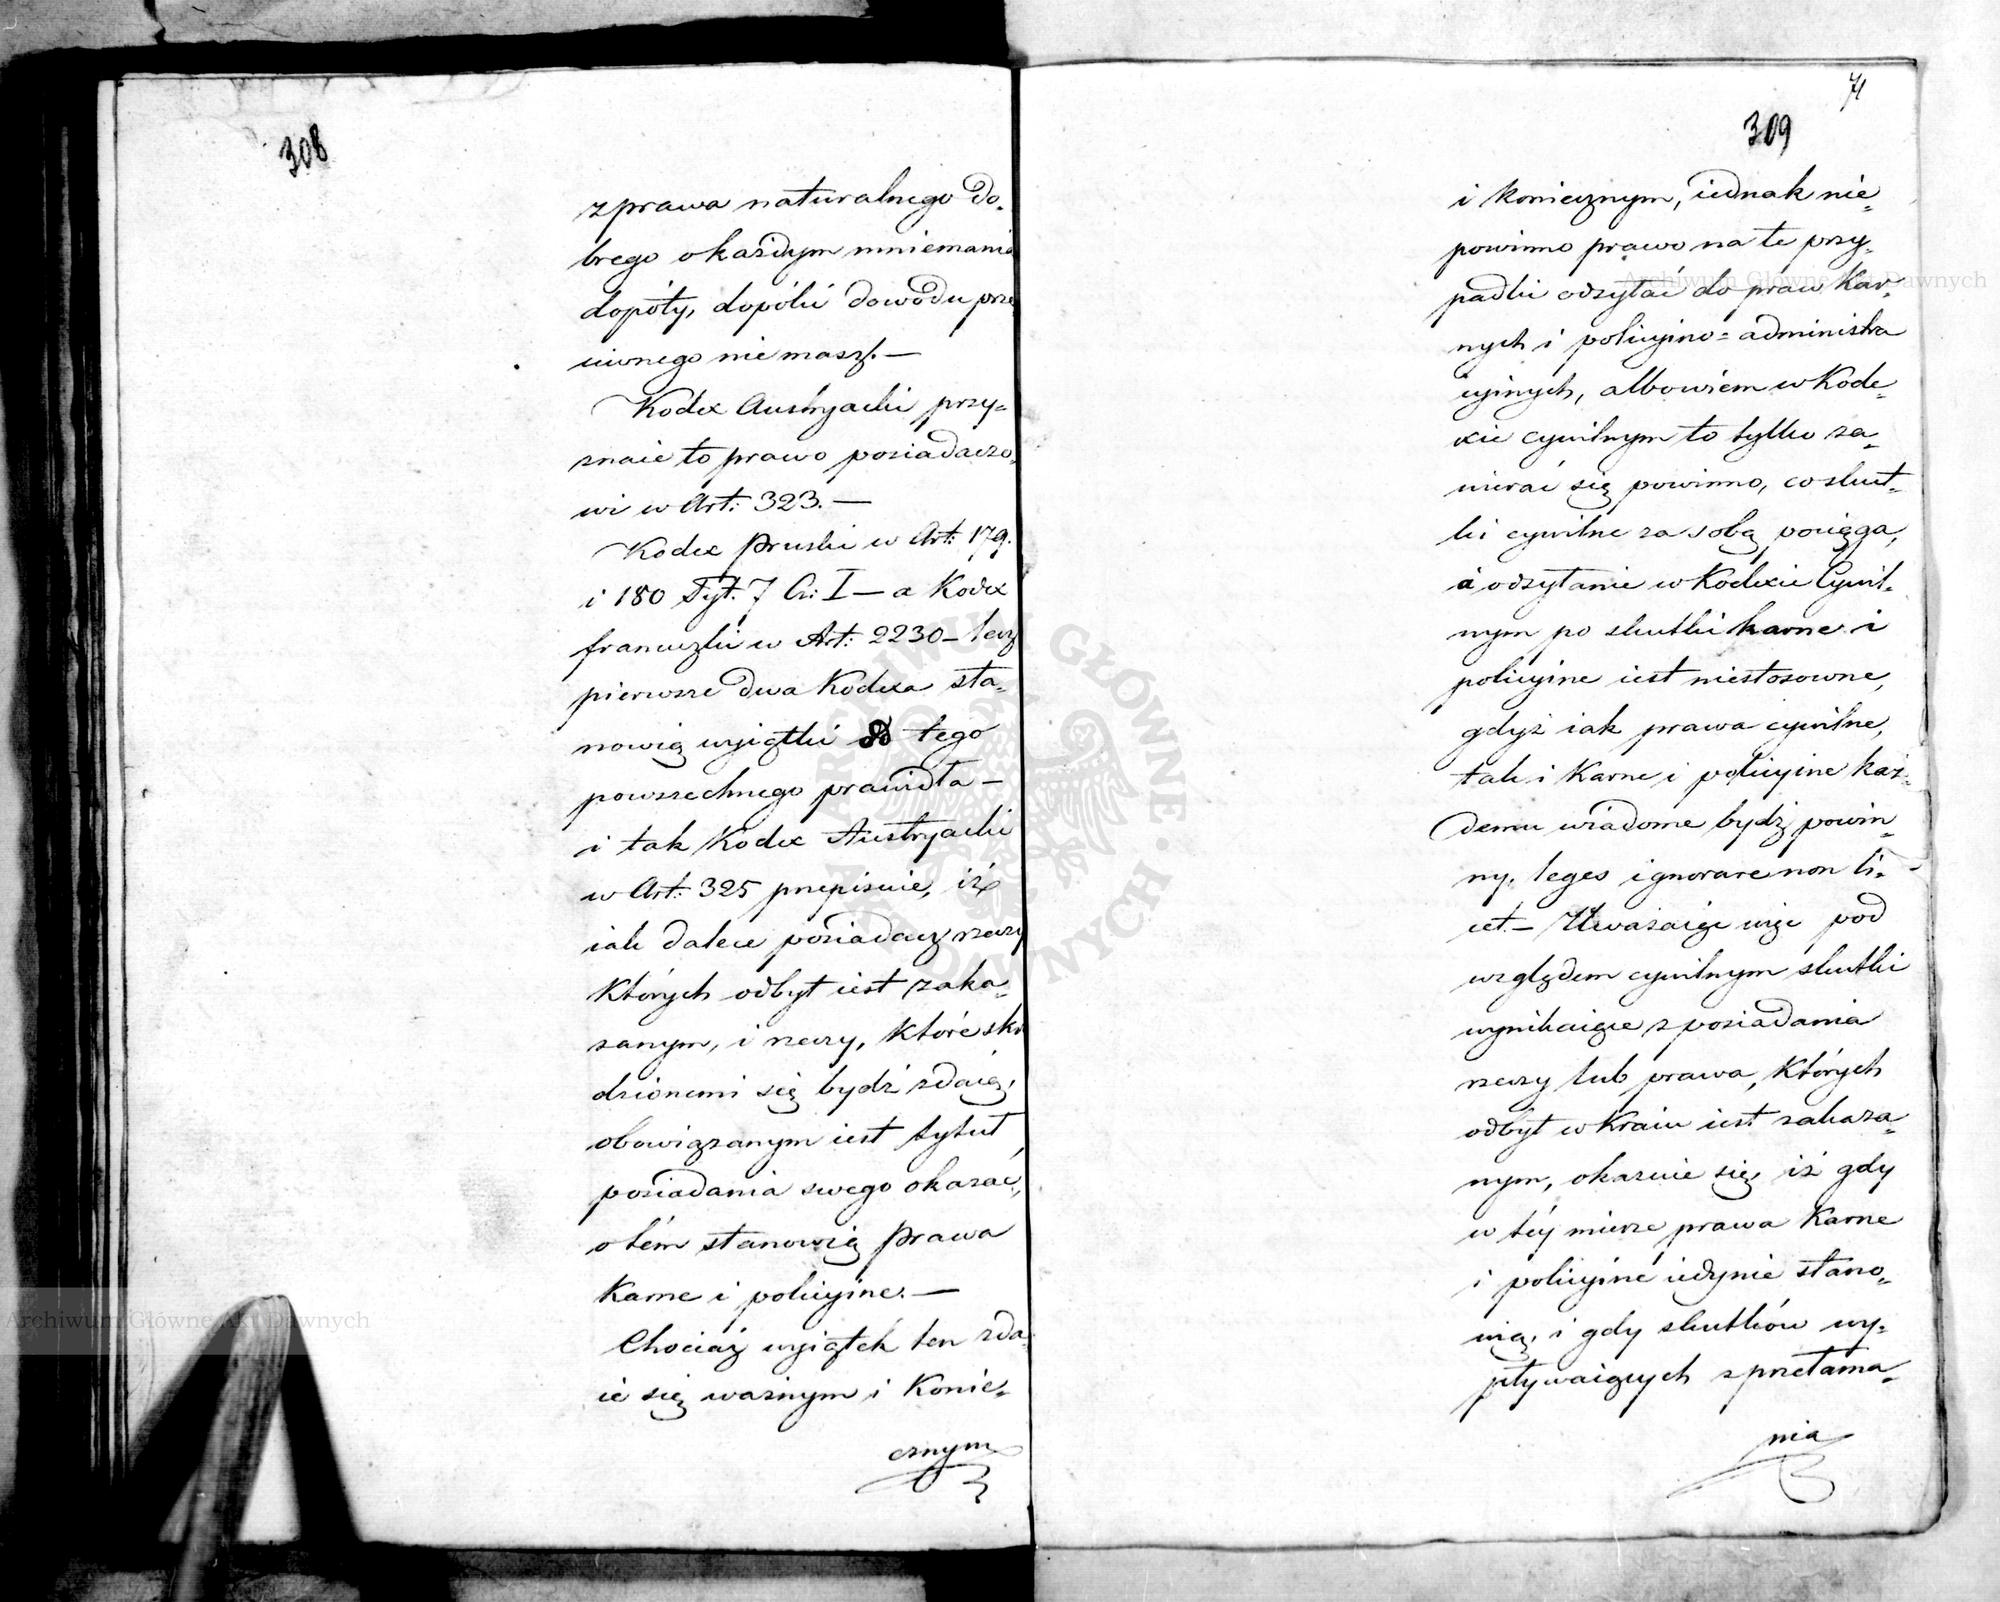 308
z prawa naturalnego do-
brego o każdym mniemania
dopóty, dopóki dowodu prze
ciwnego nie masz. —
Kodex Austryacki przy-
znaie to prawo posiadaczo-
wi w Art: 323. —
Kodex Pruski w Art: 179.
i 180 Tyt. 7 Cz: I — a Kodex
francuzki w Art: 2230 — lecz
pierwsze dwa Kodexa sta-
nowią wyiątki do tego
powszechnego prawidła —
i tak Kodex Austryacki
w Art: 325 przepisuie, iż
iak dalece posiadacz rzeczy
których odbyt iest zaka-
zanym, i rzeczy, które skra
dzionemi się bydź zdaią,
obowiązanym iest tytuł
posiadania swego okazać,
o tém stanowią prawa
Karne i policyine. —
Chociaż wyiątek ten zda-
ie się ważnym i konie-
cznym
71
309
i koniecznym, iednak nie-
powinno prawo na te przy-
padki odsyłać do praw Kar-
nych i policyino-administra
cyinych, albowiem w Kode-
xie cywilnym to tylko za-
wierać się powinno, co skut-
ki cywilne za sobą pociąga,
a odsyłanie w Kodexie Cywil-
nym po skutki karne i
policyine iest niestosowne,
gdyż iak prawa cywilne,
tak i Karne i policyine każ-
demu wiadome bydź powin-
ny. leges ignorare non li-
cet. — Uważaiąc więc pod
względem cywilnym skutki
wynikaiące z posiadania
rzeczy lub prawa, których
odbyt w Kraiu iest zakaza-
nym, okazuie się, iż gdy
w téy mierze prawa Karne
i policyine iedynie stano-
wią, i gdy skutków wy-
pływaiących z przełama-
nia
Archiwum Główne Akt Dawnych
Archiwum Główne Akt Dawnych